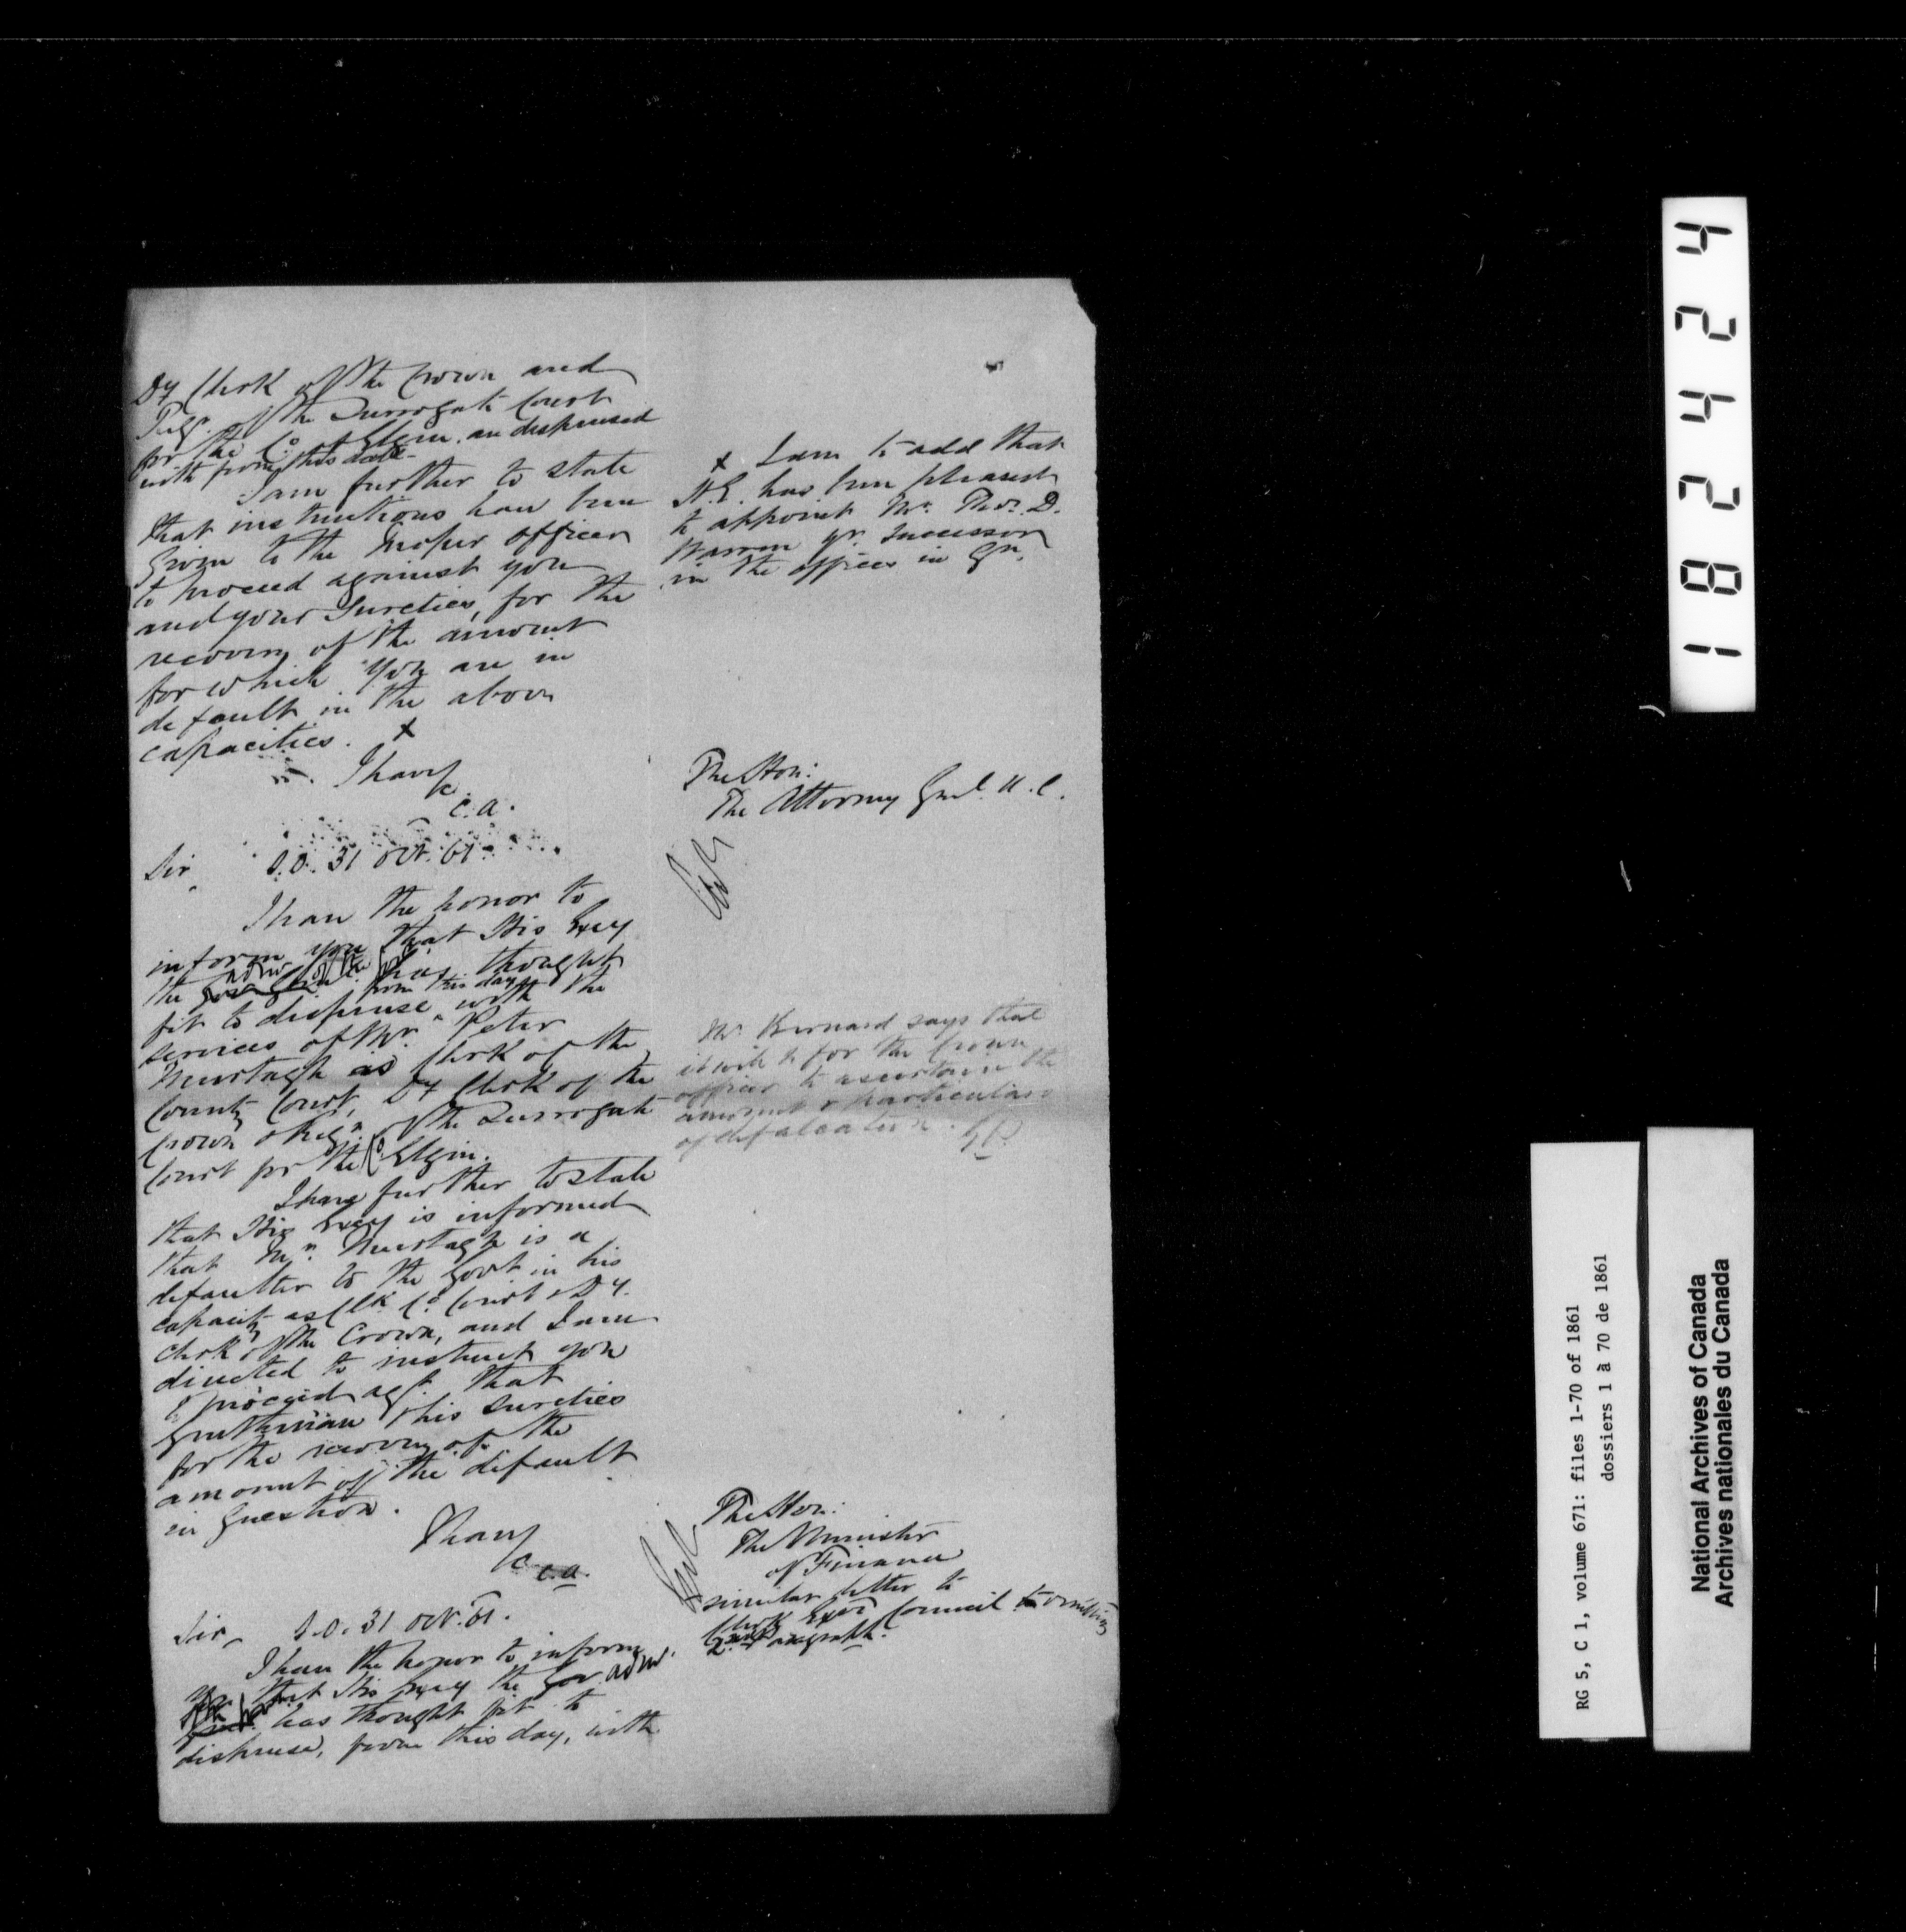 Dy Clerk of the Crown and
Regr. of the Surrogate Court
for the Co. of Elgin, are dispensed
with from this date.
I am further to state
that instructions have been
given to the proper officer
to proceed against you
and your Sureties, for the
recovery of the amount
for which you are in
default in the above
capacities. x
x I am to add that
H.E. has been pleased
to appoint Mr. Thos. D.
Warren yr. successor
in the offices in qn.
I have
&c.
E.A.
The Hon:
The Attorney Genl. U.C.
Sir, S.O. 31 Oct. 61.
I have the honor to
inform you that His Excy
the Gov. Genl. Admr of the Govt has thought
fit to dispense, from this day, with the
services of Mr. Peter
Murtagh as Clerk of the
County Court, Dy Clerk of the
Crown & Regr. of the Surrogate
Court for the Co. Elgin.
I have further to state
that His Excy is informed
that Mr. Murtagh is a
defaulter to the Govt in his
capacity as Clk. Co. Court & Dy.
Clerk of the Crown, and I am
directed to instruct you
to proceed agst. that
gentleman & his sureties
for the recovery of the
amount of the default
in question.
Mr. Bernard says that
it will be for the Crown
officer to ascertain the
amount & particulars
of defalcation.
I have
&c
E.A.
The Hon:
The Minister
of Finance
similar letter to
Clerk Exec Council omitting
2nd Paragraph.
Sir, S.O. 31 Oct. 61.
I have the honor to inform
you that His Excy the Gov. Admr.
of the Govt Genl. has thought fit to
dispense, from this day, with
182424
RG 5, C 1, volume 671: files 1-70 of 1861
dossiers 1 à 70 de 1861
National Archives of Canada
Archives nationales du Canada